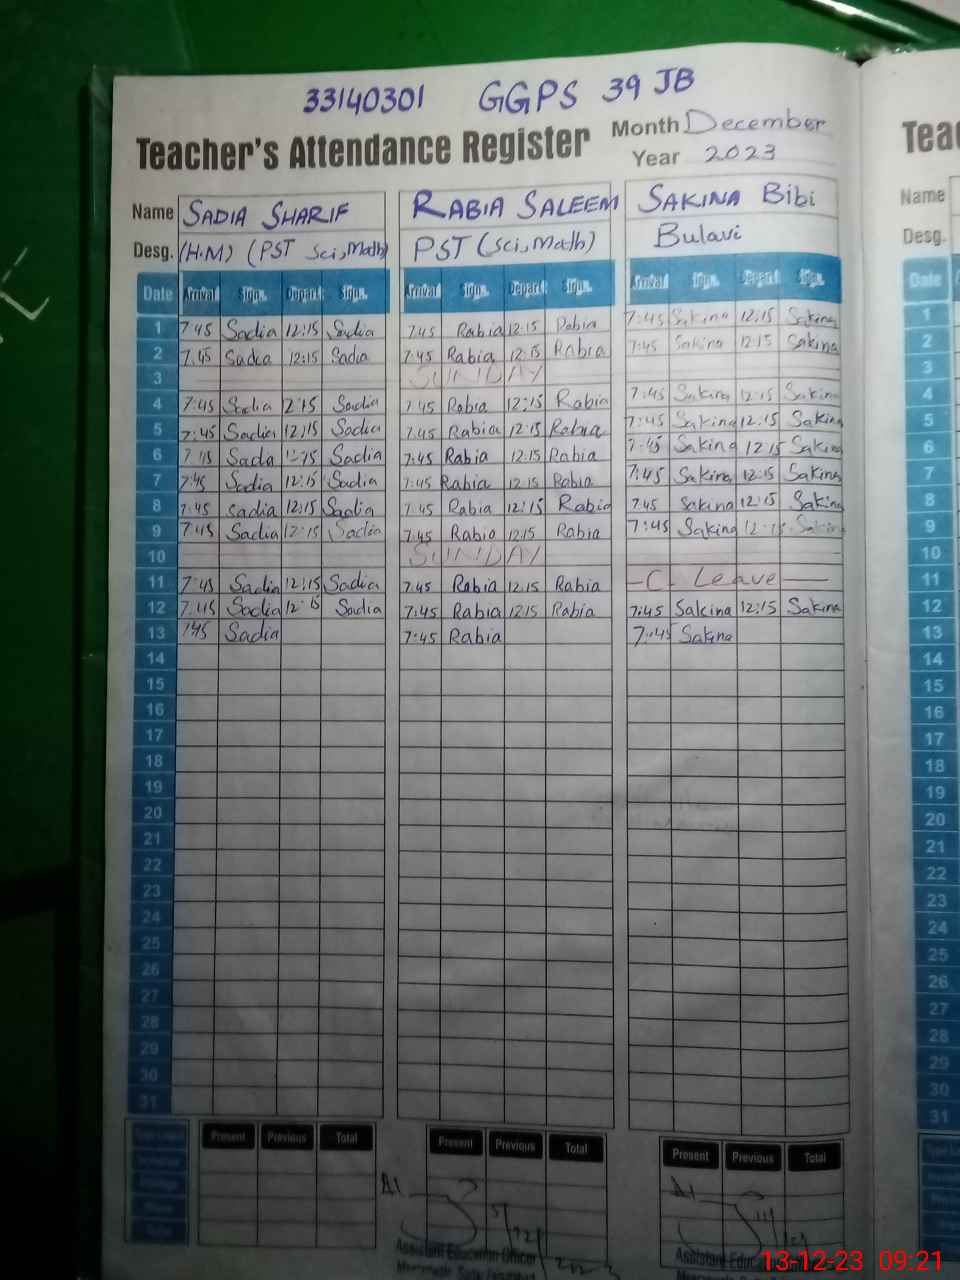 33140301 GGPS 39 JB
Teacher's Attendance Register Month December
Year 2023
Name SADIA SHARIF RABIA SALEEM SAKINA Bibi
Desg. (H.M) (PST Sci, Math) PST (Sci, Math) Bulavi
Date Arrival Sign. Depart Sign. Arrival Sign. Depart Sign. Arrival Sign. Depart Sign.
1 7 45 Sadia 12:15 Sadia 7:45 Rabia 12:15 Rabia 7:45 Sakina 12:15 Sakina
2 7.45 Sadia 12:15 Sadia 7:45 Rabia 12:15 Rabia 7:45 Sakina 12:15 Sakina
3 SUNDAY
4 7:45 Sadia 2:15 Sadia 7:45 Rabia 12:15 Rabia 7:45 Sakina 12:15 Sakina
5 7:45 Sadia 12:15 Sadia 7:45 Rabia 12:15 Rabia 7:45 Sakina 12:15 Sakina
6 7:45 Sadia 12:15 Sadia 7:45 Rabia 12:15 Rabia 7:45 Sakina 12:15 Sakina
7 7:45 Sadia 12:15 Sadia 7:45 Rabia 12:15 Rabia 7:45 Sakina 12:15 Sakina
8 7:45 Sadia 12:15 Sadia 7:45 Rabia 12:15 Rabia 7:45 Sakina 12:15 Sakina
9 7:45 Sadia 12:15 Sadia 7:45 Rabia 12:15 Rabia 7:45 Sakina 12:15 Sakina
10 SUNDAY
11 7:45 Sadia 12:15 Sadia 7:45 Rabia 12:15 Rabia —C. Leave—
12 7:45 Sadia 12:15 Sadia 7:45 Rabia 12:15 Rabia 7:45 Sakina 12:15 Sakina
13 7:45 Sadia 7:45 Rabia 7:45 Sakina
14
15
16
17
18
19
20
21
22
23
24
25
26
27
28
29
30
31
Present Previous Total Present Previous Total Present Previous Total
Assistant Education Officer
Assistant Educ
Tea
Name
Desg.
Date
1
2
3
4
5
6
7
8
9
10
11
12
13
14
15
16
17
18
19
20
21
22
23
24
25
26
27
28
29
30
31
13-12-23 09:21